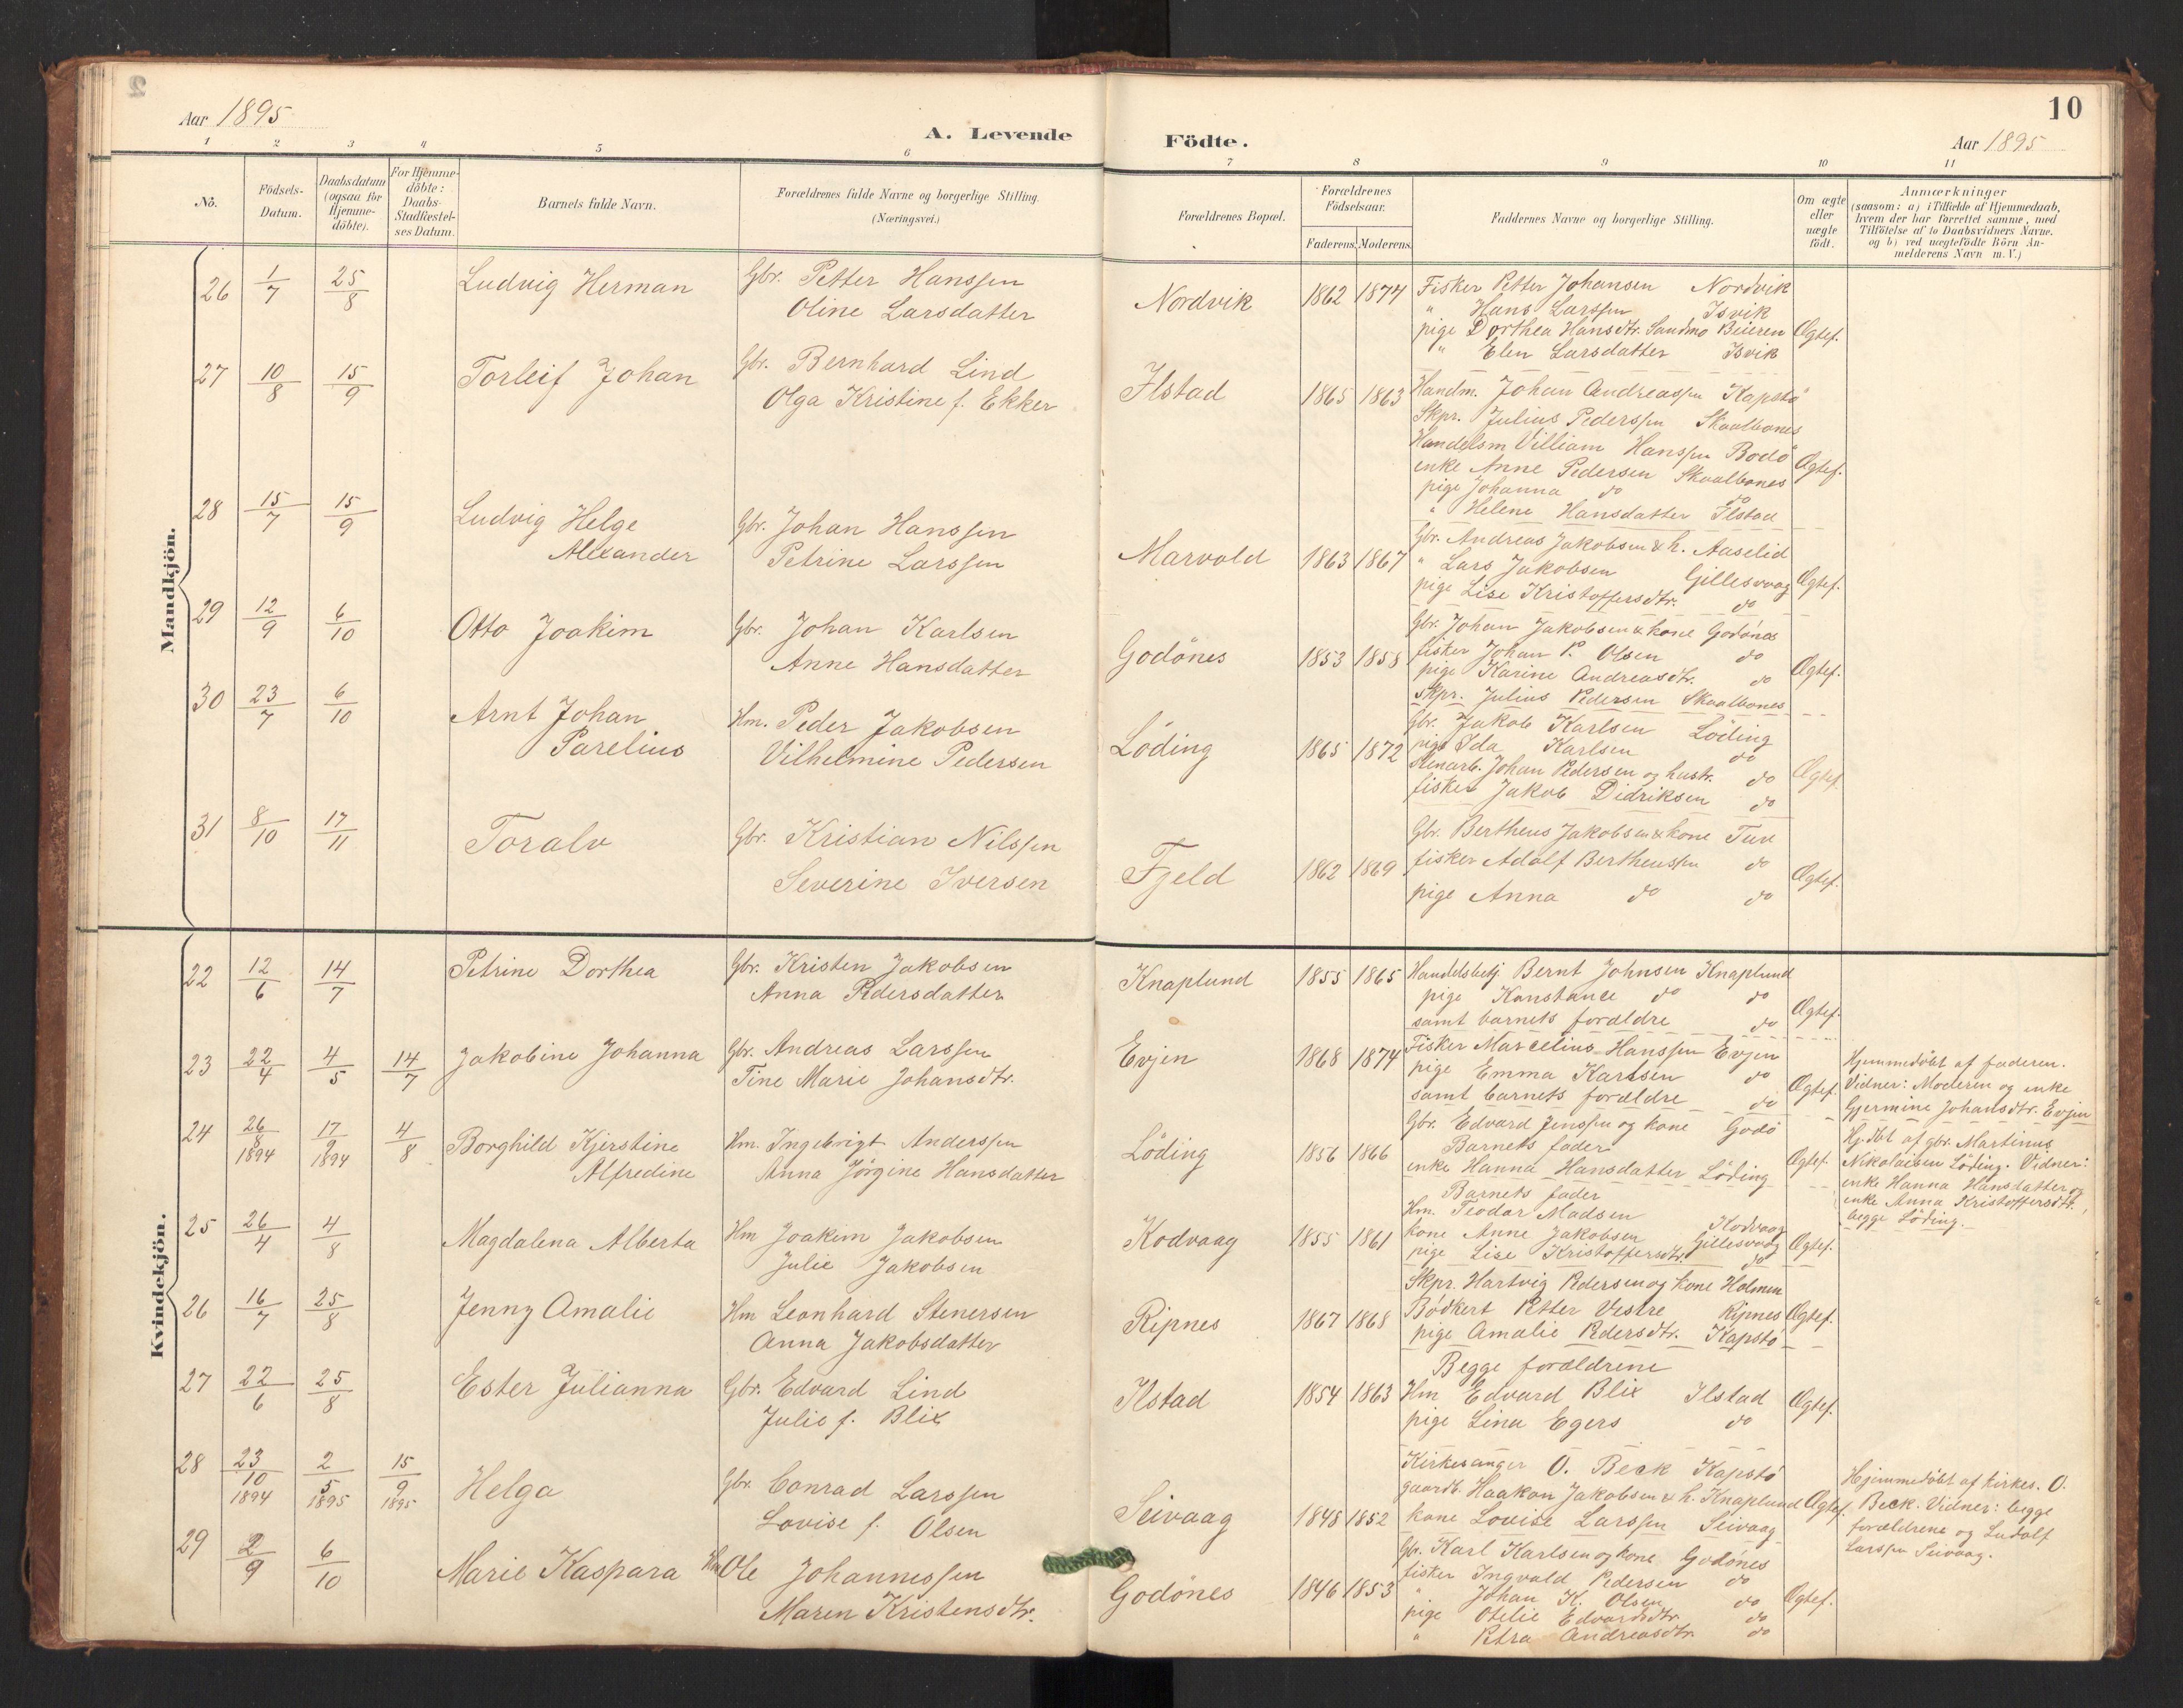 Aar 1895
A. Levende Födte.
10
Aar 1895
1 2 3 4 5 6 7 8 9 10 11
No.
Födsels-Datum.
Daabsdatum (ogsaa for Hjemme-döbte).
For Hjemme-döbte: Daabs-Stadfæstel-ses Datum.
Barnets fulde Navn.
Forældrenes fulde Navne og borgerlige Stilling. (Næringsvei.)
Forældrenes Bopæl.
Forældrenes Födselsaar.
Faderens. Moderens.
Faddernes Navne og borgerlige Stilling.
Om ægte eller uægte födt.
Anmærkninger
(saasom: a) i Tilfælde af Hjemmedaab,
hvem der har forrettet samme, med
Tilföielse af to Daabsvidners Navne.
og b) ved uægtefödte Börn An-
melderens Navn m. V.)
Mandkjön.
26 1/7 25/8 Ludvig Herman Gbr. Petter Hanssen
Oline Larsdatter
Nordvik 1862 1874 Fisker Petter Johansen Nordvik
" Hans Larssen Isvik
pige Dorthea Hansdtr. Sandmo Beieren Ægtef.
" Elen Larsdatter Isvik
27 10/8 15/9 Torleif Johan Gbr. Bernhard Lind
Olga Kristine f. Ekker
Ilstad 1865 1863 Handm. Johan Andreassen Kapstö
Skpr. Julius Pederssen Skaalbones
Handelsm Villiam Hanssen Bodö
enke Anne Pedersen Skaalbones Ægtef.
pige Johanna do do
" Helene Hansdatter Ilstad
28 15/7 15/9 Ludvig Helge
Alexander
Gbr. Johan Hanssen
Petrine Larssen
Marvold 1863 1867 Gbr. Andreas Jakobsen & h. Aaselid
" Lars Jakobsen Gillesvaag Ægtef.
pige Lise Kristoffersdtr. do
29 12/9 6/10 Otto Joakim Gbr. Johan Karlsen
Anne Hansdatter
Godönes 1853 1858 Gbr. Johan Jakobsen & kone Godönes
fisker Johan P. Olsen do
pige Karine Andreasdtr. do Ægtef.
Skpr. Julius Pedersen Skaalbones
30 23/7 6/10 Arnt Johan
Parelius
Hm. Peder Jakobsen
Vilhelmine Pedersen
Löding 1865 1872 Gbr. Jakob Karlsen Löding
pige Ida Karlsen do
Stenarb. Johan Pedersen og hustr. do Ægtef.
fisker Jakob Didriksen do
31 8/10 17/11 Toralv Gbr. Kristian Nilssen
Severine Iversen
Fjeld 1862 1869 Gbr. Bertheus Jakobsen & kone Tuv
fisker Adolf Bertheussen do Ægtef.
pige Anna do do
Kvindekjön.
22 12/6 14/7 Petrine Dorthea Gbr. Kristen Jakobsen
Anna Pedersdatter
Knaplund 1855 1865 Handelsbetj. Bernt Johnsen Knaplund
pige Konstance do do Ægtef.
samt barnets forældre do
23 22/4 4/5 14/7 Jakobine Johanna Gbr. Andreas Larssen
Tine Marie Johansdtr.
Evjen 1868 1874 Fisker Marcelius Hanssen Evjen
pige Emma Karlsen do Ægtef.
samt barnets forældre do
Hjemmedöbt af faderen.
Vidner: Moderen og enke
Gjermine Johansdtr. Evjen
24 26/8 1894 17/9 1894 4/8 Borghild Kjerstine
Alfredine
Hm. Ingebrigt Anderssen
Anna Jörgine Hansdatter
Löding 1856 1866 Gbr. Edvard Jenssen og kone Godö
Barnets fader
enke Hanna Hansdatter Löding Ægtef.
Hj.döbt af gbr. Martinus
Nikolaisen Löding. Vidner:
enke Hanna Hansdatter og
enke Anna Kristoffersdtr.,
begge Löding.
25 26/4 4/8 Magdalena Alberta Hm Joakim Jakobsen
Julie Jakobsen
Kodvaag 1855 1861 Barnets fader
Hm. Teodor Madsen Kodvaag
kone Anne Jakobsen Gillesvaag Ægtef.
pige Lise Kristoffersdtr. do
26 16/7 25/8 Jenny Amalie Hm Leonhard Stenersen
Anna Jakobsdatter
Ripnes 1867 1868 Skpr. Hartvig Pedersen og kone Holmen
Bödkert Petter Vestre Ripnes Ægtef.
pige Amalie Pedersdtr. Kapstö
27 22/6 25/8 Ester Julianna Gbr. Edvard Lind
Julie f. Blix
Ilstad 1854 1863 Begge forældrene
Hm Edvard Blix Ilstad Ægtef.
pige Lina Egers do
28 23/10 1894 2/5 1895 15/9 1895 Helga Gbr. Conrad Larssen
Lovise f. Olsen
Seivaag 1848 1852 Kirkesanger O. Beck Kapstö
gaardb. Haakon Jakobsen & h. Knaplund Ægtef.
kone Lovise Larssen Seivaag
Hjemmedöbt af kirkes. O.
Beck. Vidner: begge
forældrene og Ludolf
Larssen Seivaag.
29 2/9 6/10 Marie Kaspara Hm Ole Johannessen
Maren Kristensdtr.
Godönes 1846 1853 Gbr. Karl Karlsen og kone Godönes
fisker Ingvald Pedersen do
" Johan K. Olsen do Ægtef.
pige Otelie Edvardsdtr. do
" Petra Andreasdtr. do